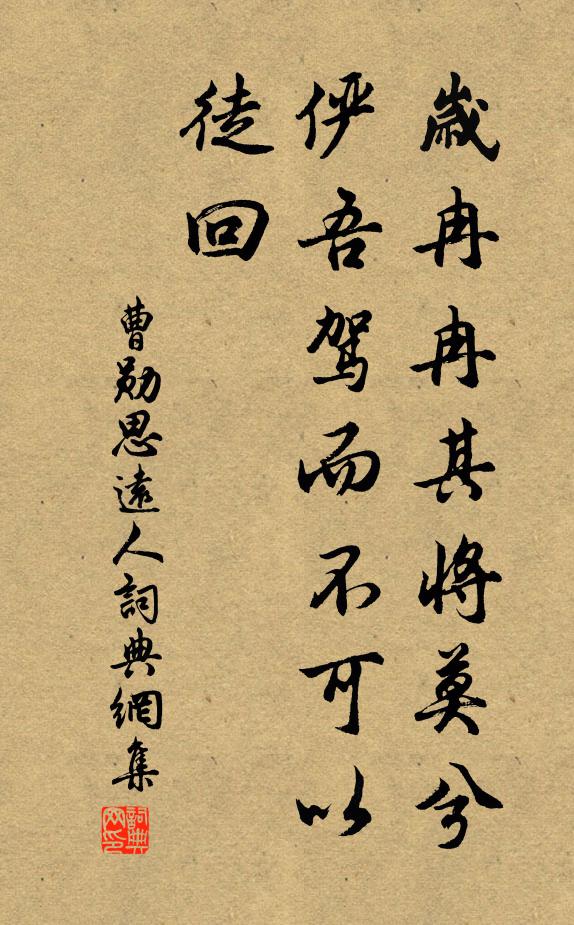 歲冉冉其將莫兮
俨吾駕而不可以
徒回
曹勛思遠人詞典網集
詞典網印